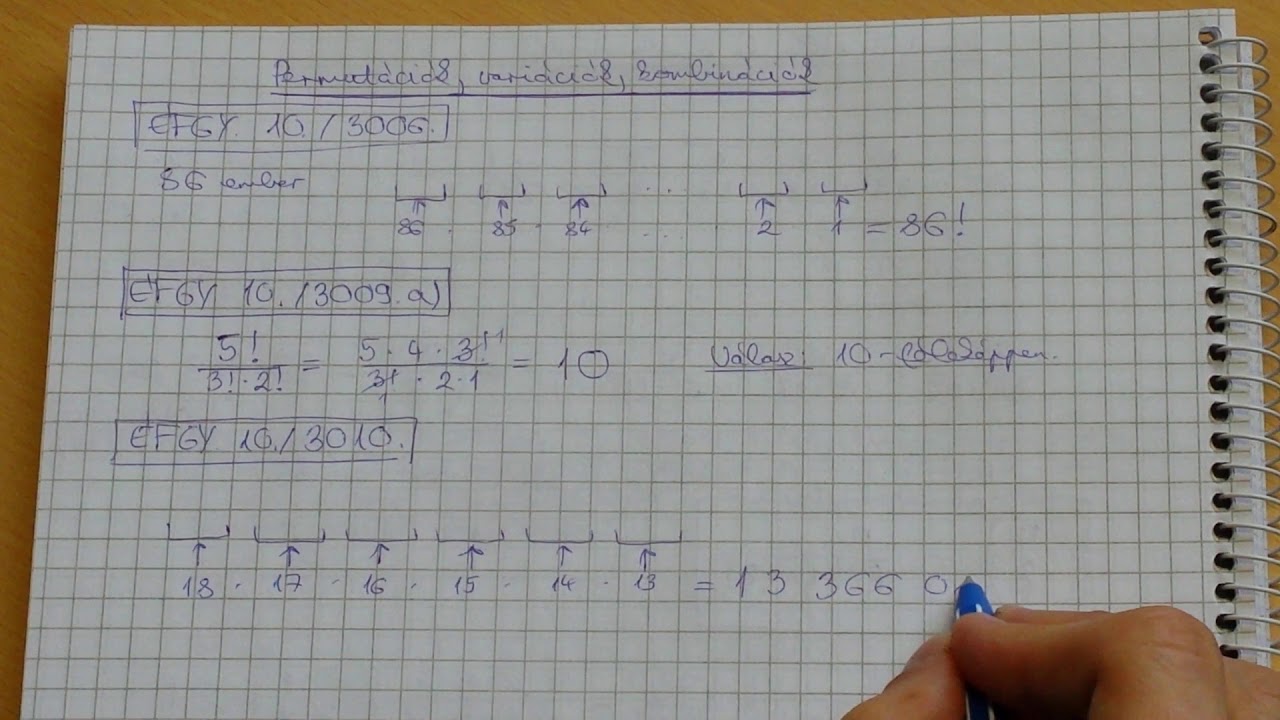 Permutációk, variációk, kombinációk
EFGY. 10./3006.
86 ember
86 · 85 · 84 ... 2 1 = 86!
EFGY 10./3009.a)
5! / 3!·2! = 5·4·3! / 3!·2·1 = 10 Válasz: 10-féleképpen.
EFGY 10./3010.
18 · 17 · 16 · 15 · 14 · 13 = 13 366 0